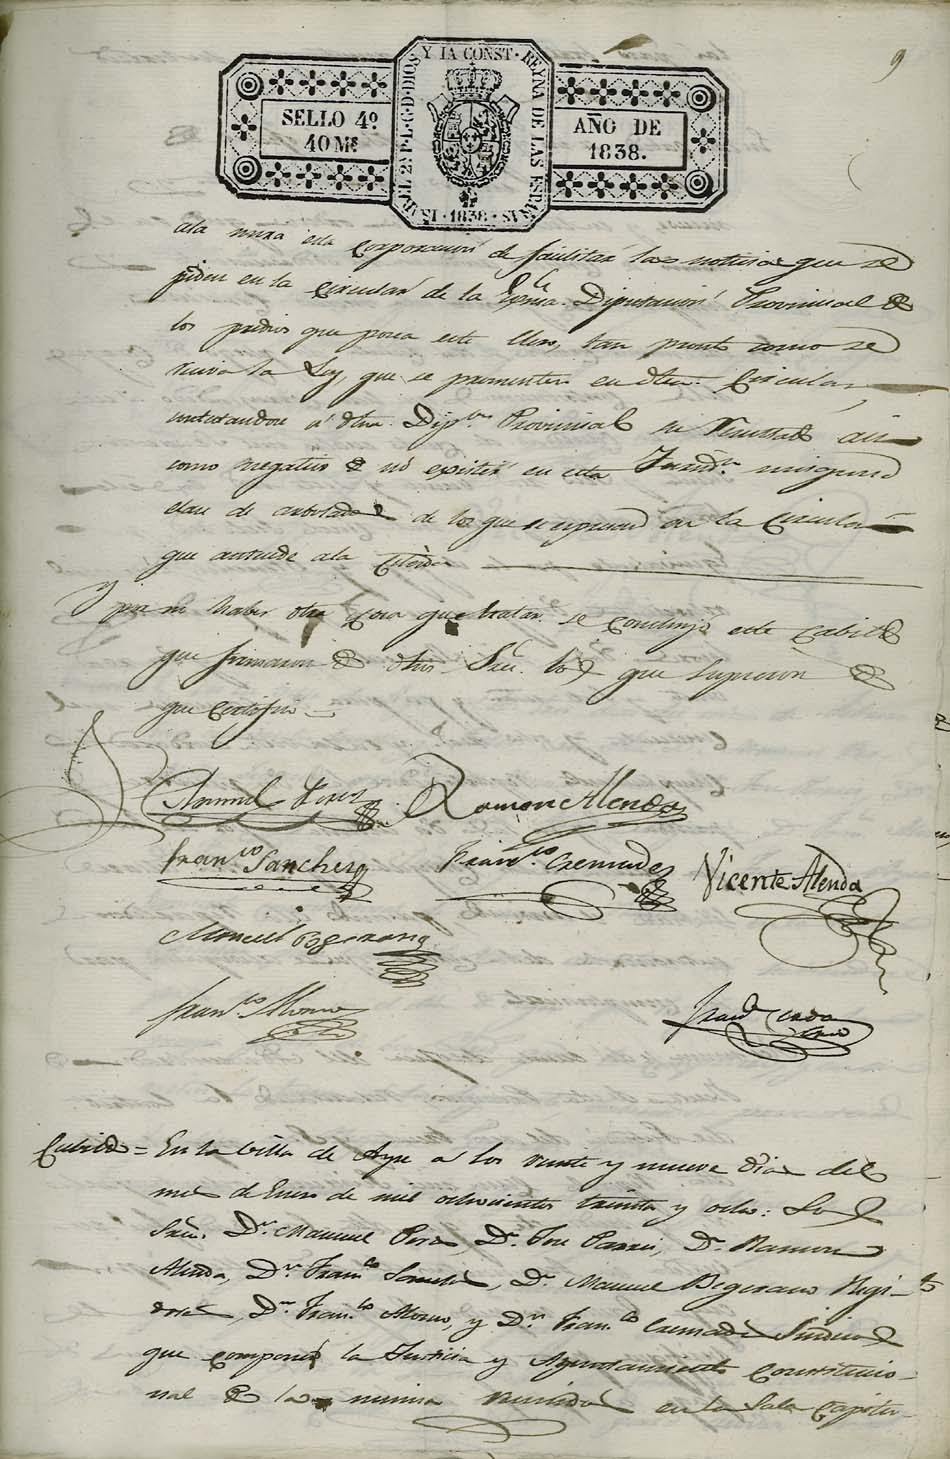 9
SELLO 4º
40 Mˢ
YSABEL 2ª P.L.G.D DIOS Y LA CONST. REYNA DE LAS ESPAÑAS
1838
AÑO DE
1838.
ala mira esta Corporacion de facilitar las noticias que se
piden en la circular de la Exma. Diputacion Provincial de
los predios que posea este tan pronto como se
reciva la Ley, que se promete en dha. Circular
contestandose á dha. Dipon. Provincial su asi
como negativo de no existir en esta Jurisdn. ninguna
clase de arbolado de los que se expresan en la Circular
que antecede ala citada
Y por no haber otra cosa que tratar se concluyó este Cabildo
que firmaron de dhos. Sres. los que supieron de
que certifico =
Manuel Perez Ramon Alenda
Franco Sanchez Franco. Cremades Vicente Alenda
Manuel Bogerano
Franco Alonso
Cabildo = En la Villa de Aspe a los veinte y nueve dias del
mes de Enero de mil ochocientos treinta y ocho: Los
Sres. Dn. Manuel Perez Dn. Jose Dn. Ramon
Alenda, Dn. Franco Sanchez, Dn. Manuel Bogerano Regi-
dores, Dn. Franco Alonso, y Dn. Franco Cremades Sindicos
que componen la Justicia y Ayuntamiento Constitucio-
nal de la misma reunidos en la Sala Capitu-